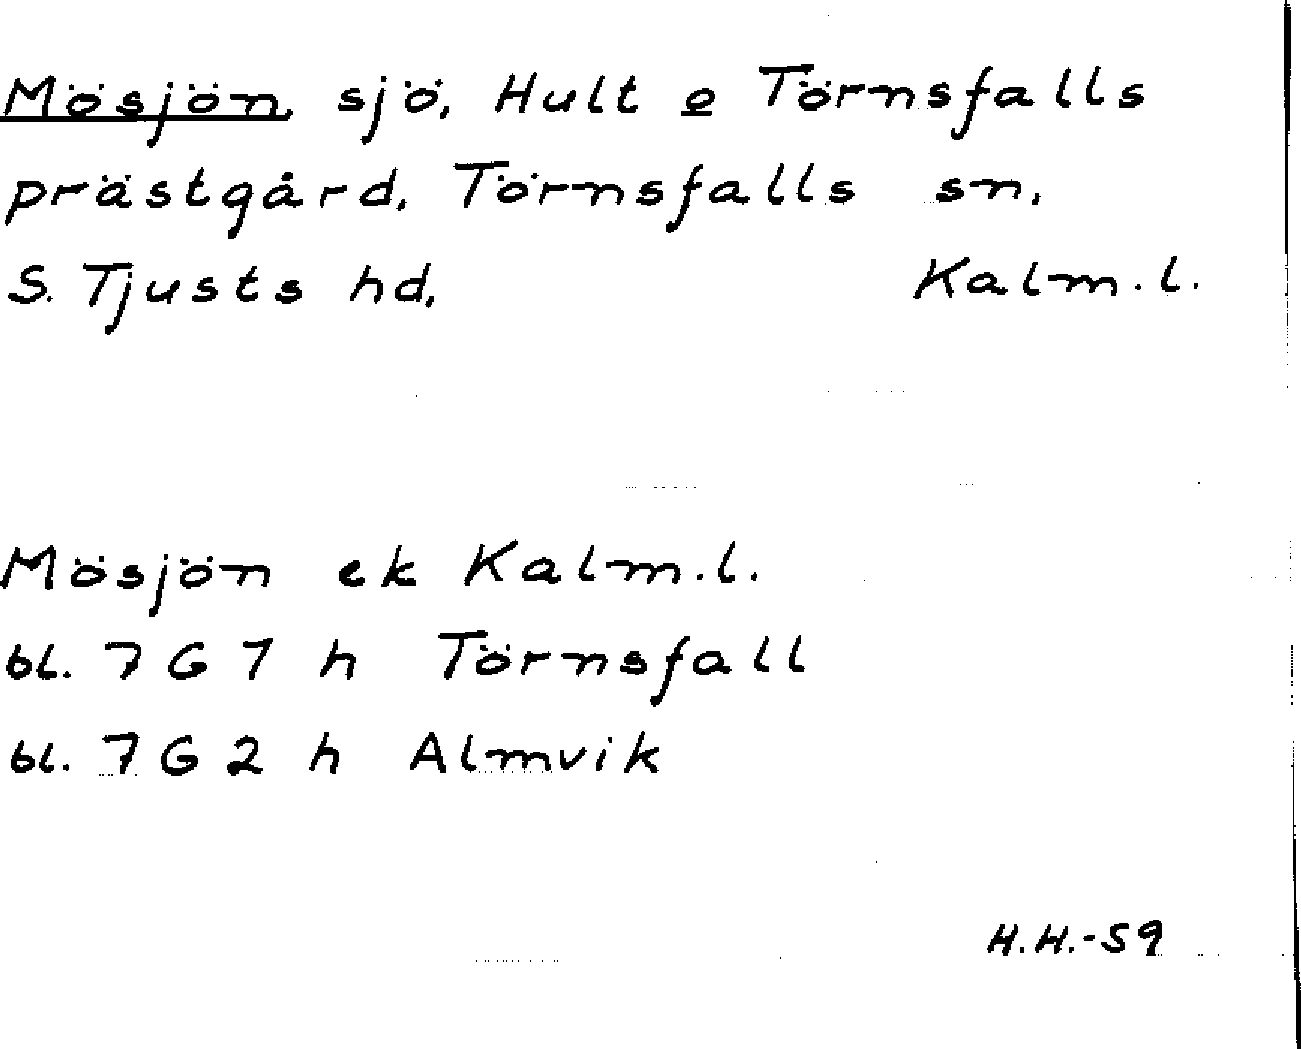 Mösjön, sjö, Hult o Törnsfalls
prästgård, Törnsfalls sn,
S. Tjusts hd, Kalm.l.
Mösjön ek Kalm.l.
bl. 7 G 1 h Törnsfall
bl. 7 G 2 h Almvik
H.H.-59